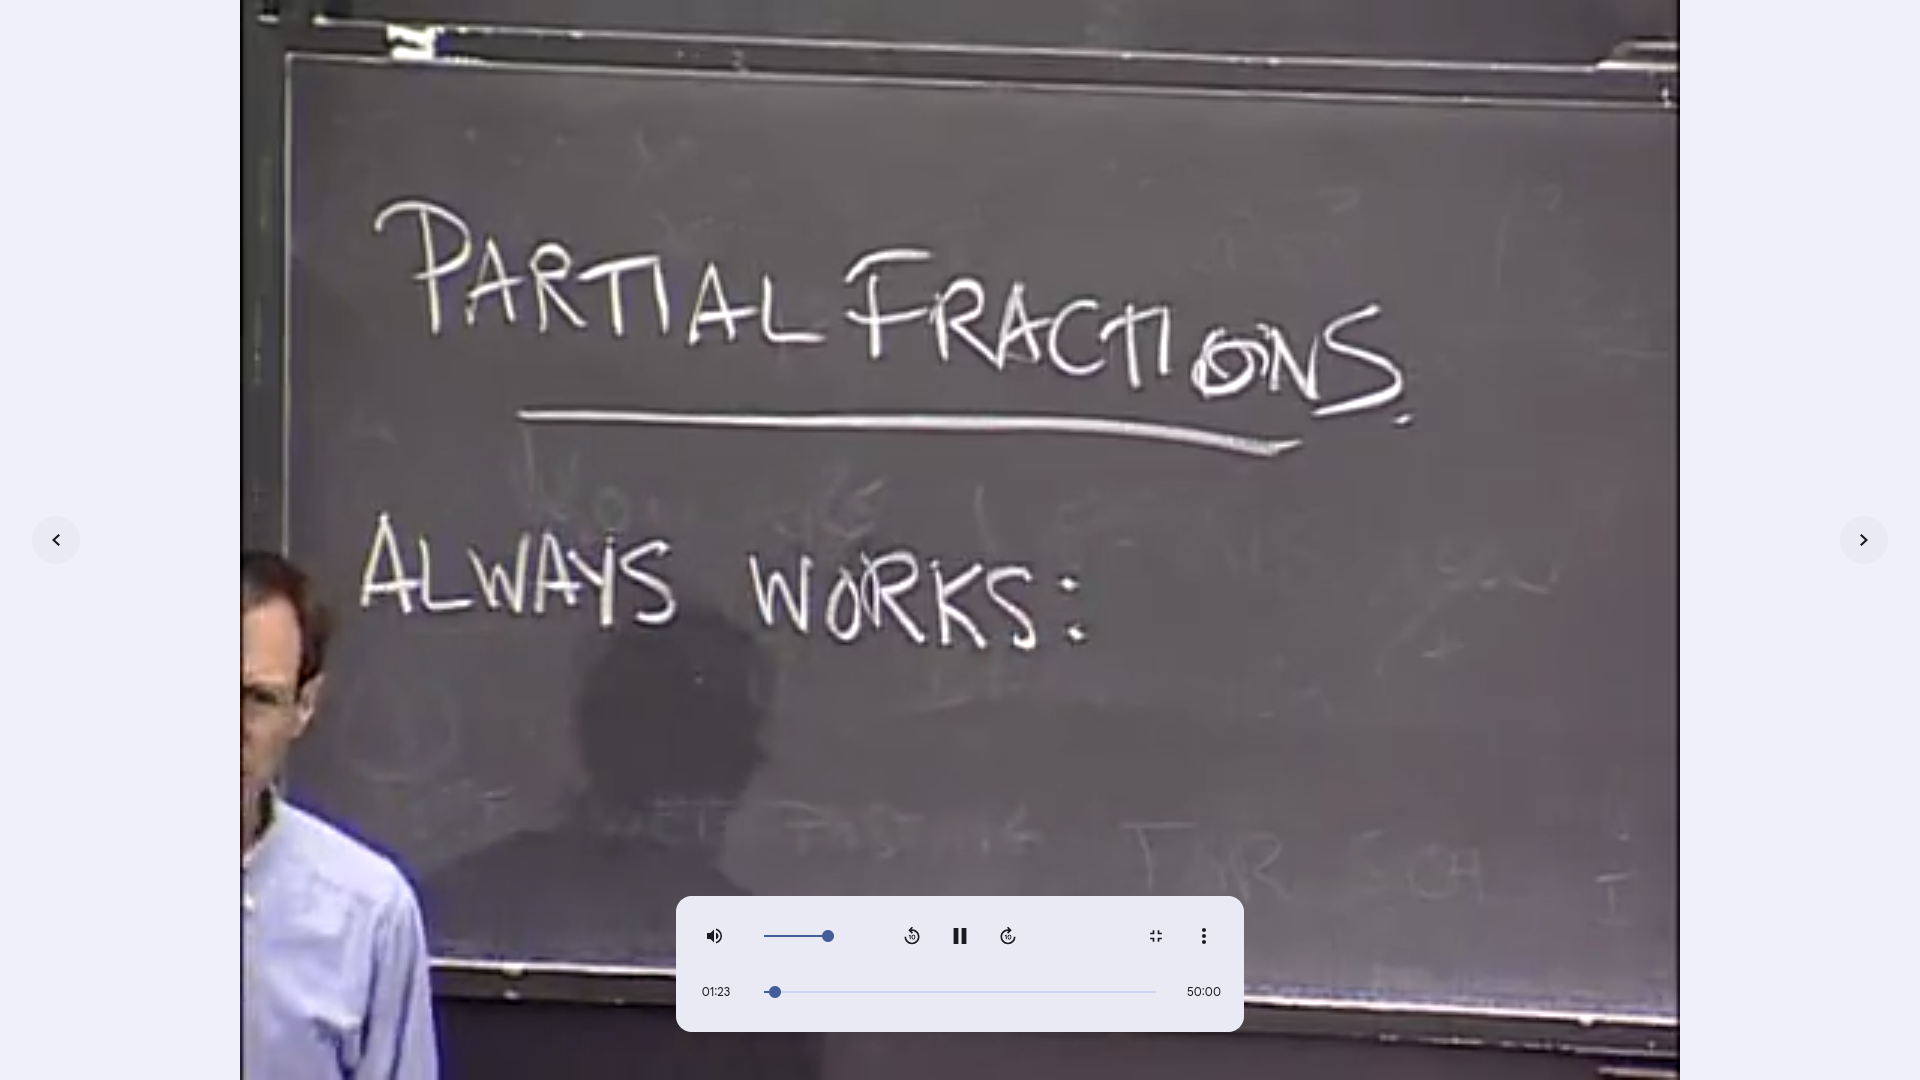 PARTIAL FRACTIONS.
ALWAYS WORKS:
01:23
50:00